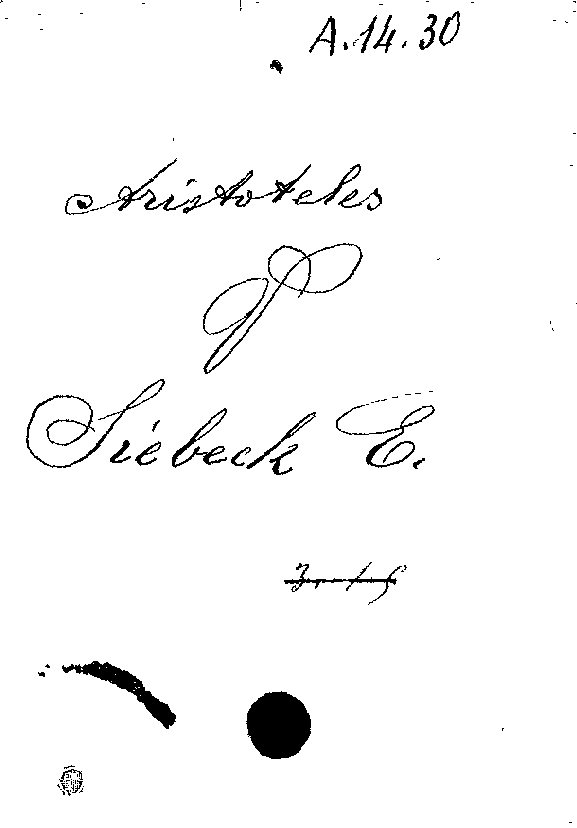 A.14.30
Aristoteles
Siebeck E.